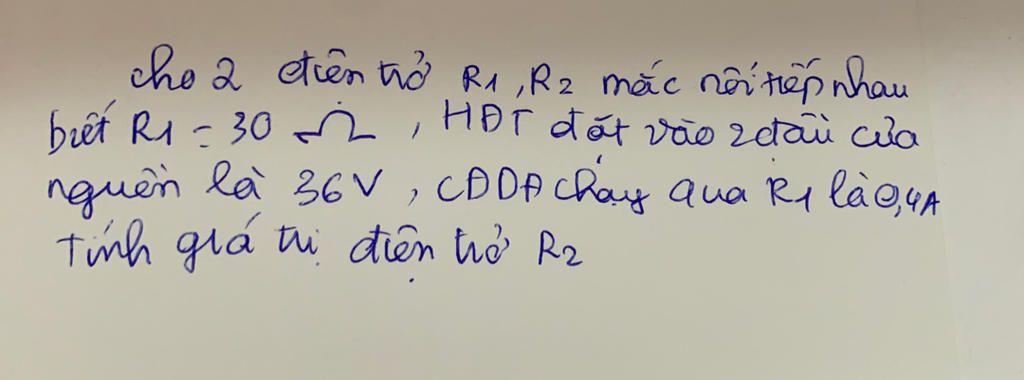 cho 2 điện trở R1, R2 mắc nối tiếp nhau
biết R1 = 30 Ω, HĐT đặt vào 2 đầu của
nguồn là 36V, CĐDĐ chạy qua R1 là 0,4A
Tính giá trị điện trở R2